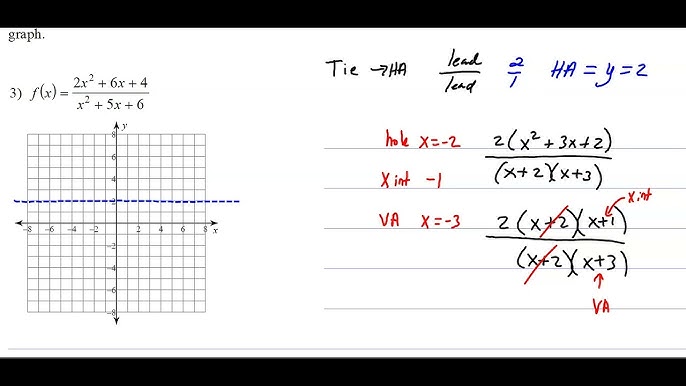 graph.
Tie → HA lead/lead 2/1 HA = y = 2
3) f(x) = (2x² + 6x + 4)/(x² + 5x + 6)
hole x = -2
2(x² + 3x + 2)/((x+2)(x+3))
x int -1
x int
VA x = -3
2(x+2)(x+1)/((x+2)(x+3))
VA
y
8
6
4
2
-8 -6 -4 -2 2 4 6 8 x
-2
-4
-6
-8